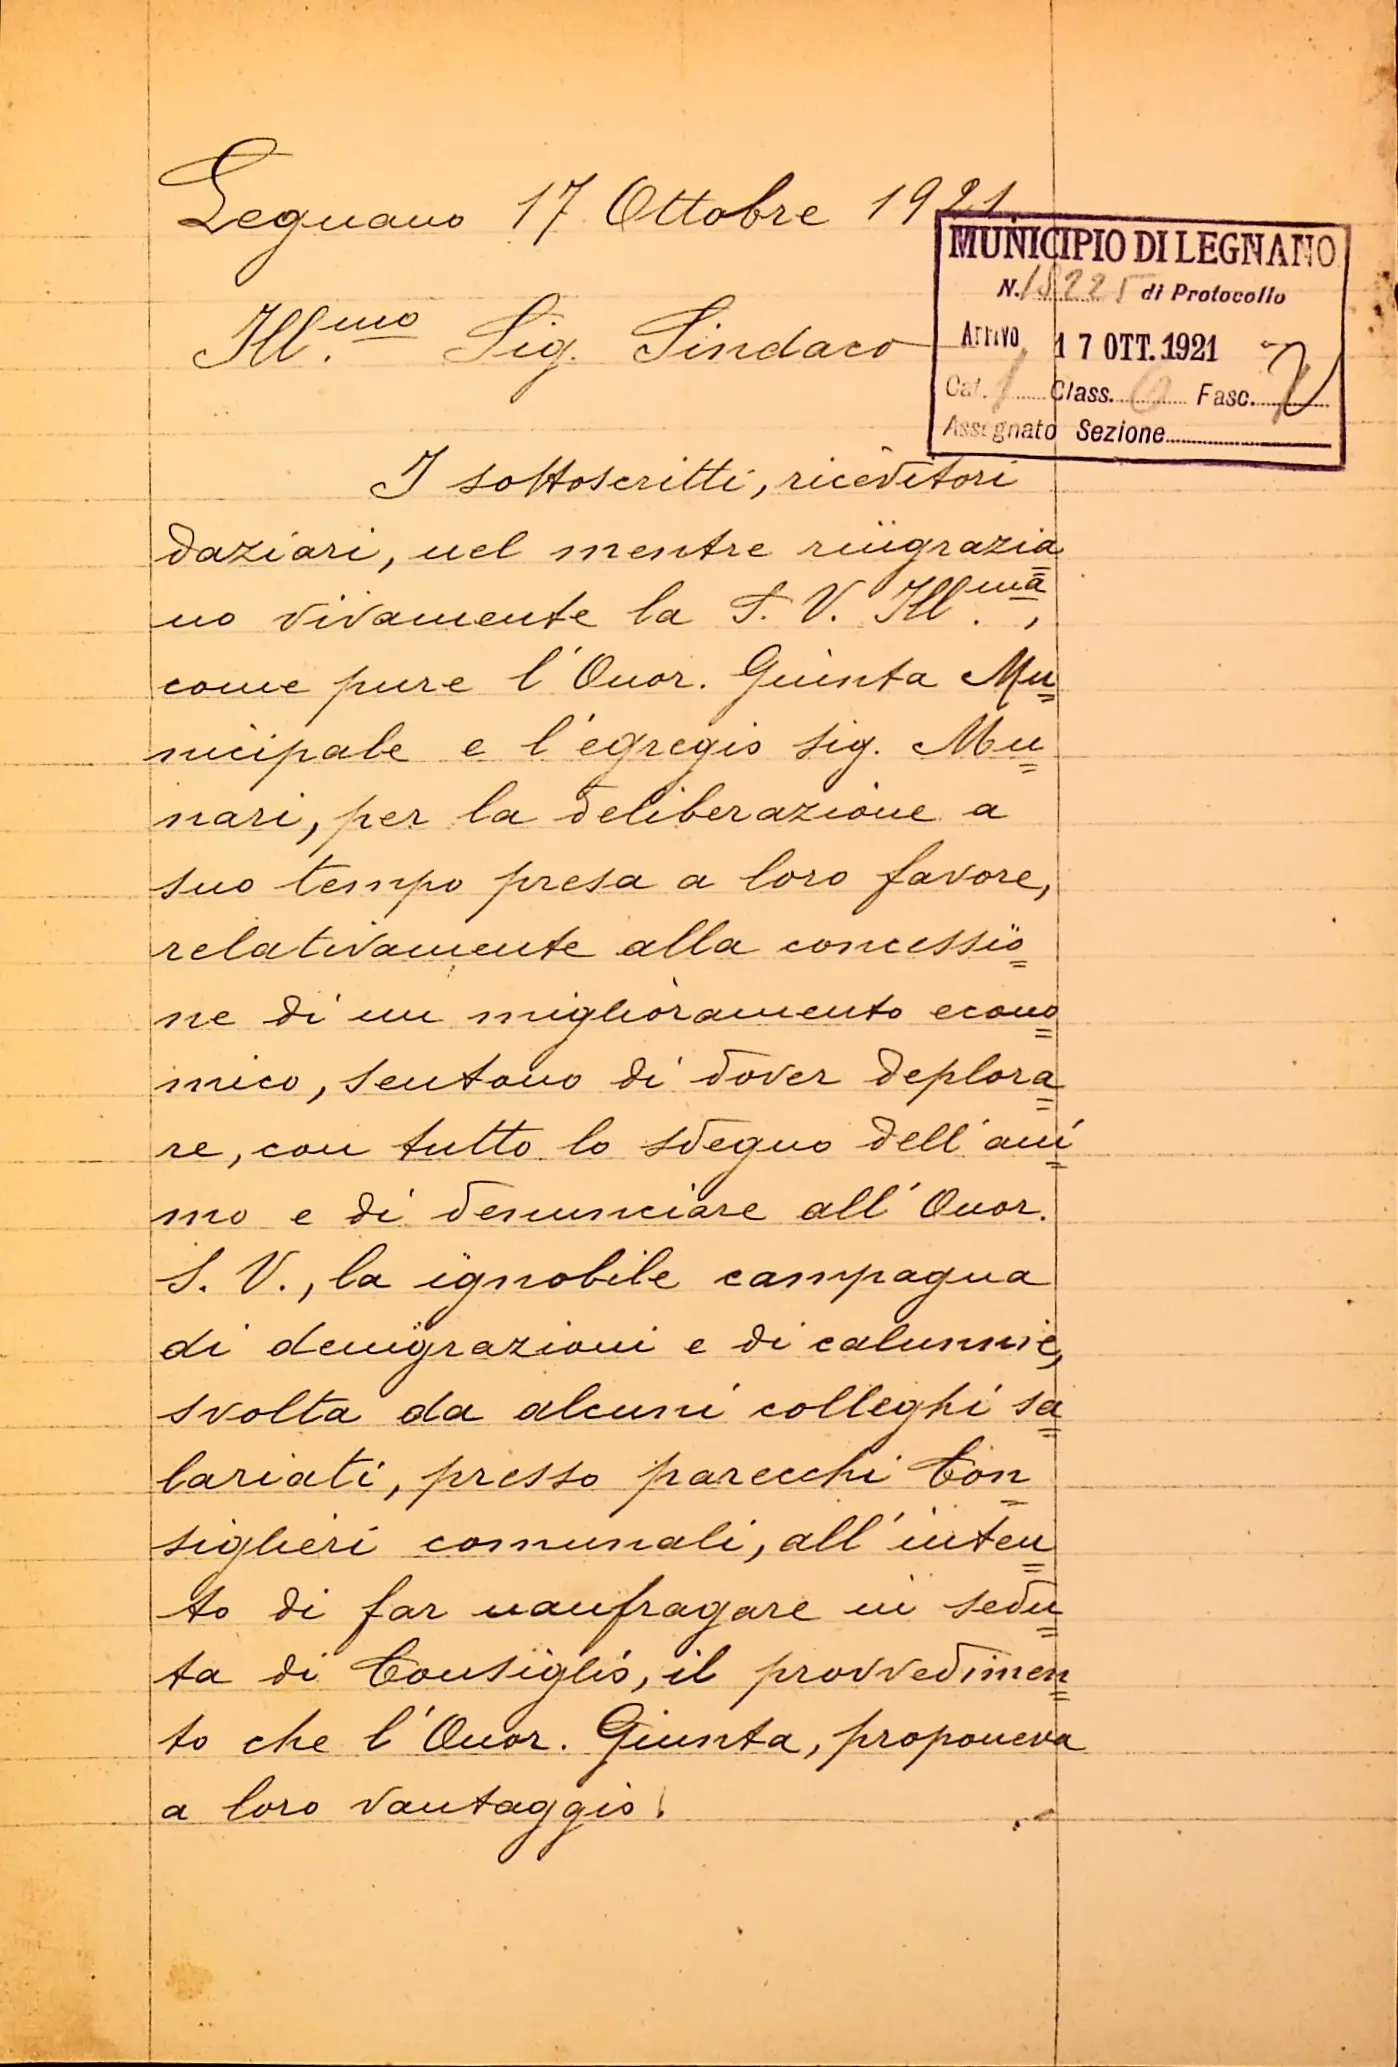 Legnano 17 Ottobre 1921
MUNICIPIO DI LEGNANO
N. 18225 di Protocollo
Arrivo 17 OTT. 1921
Cat. 1 Class. 6 Fasc.
Assegnato Sezione
Ill.mo Sig. Sindaco
I sottoscritti, ricevitori
daziari, nel mentre ringrazia=
no vivamente la S. V. Ill.ma,
come pure l'Onor. Giunta Mu=
nicipale e l'egregio sig. Mu=
nari, per la deliberazione a
suo tempo presa a loro favore,
relativamente alla concessio=
ne di un miglioramento econo=
mico, sentono di dover deplora=
re, con tutto lo sdegno dell'ani=
mo e di denunciare all'Onor.
S. V., la ignobile campagna
di denigrazioni e di calunnie,
svolta da alcuni colleghi sa=
lariati, presso parecchi Con=
siglieri comunali, all'inten=
to di far naufragare in sedu=
ta di Consiglio, il provvedimen=
to che l'Onor. Giunta, proponeva
a loro vantaggio.